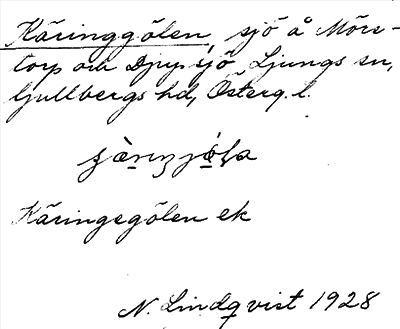 Käringgölen, sjö å Mörs-
torp och Djupsjö Ljungs sn,
Gullbergs hd, Österg. l.
Käringegölen ek
N. Lindqvist 1928